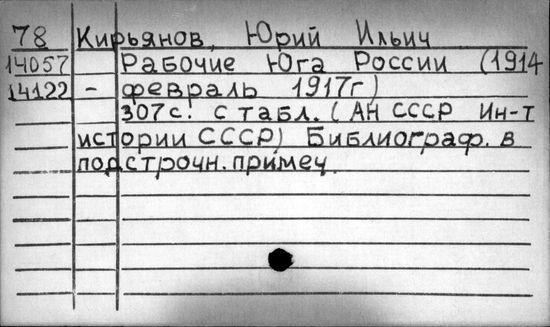 78 Кирьянов, Юрий Ильич
14057 Рабочие Юга России (1914
14122 – февраль 1917г)
307с. с табл. (АН СССР Ин-т
истории СССР) Библиограф. в
подстрочн. примеч.